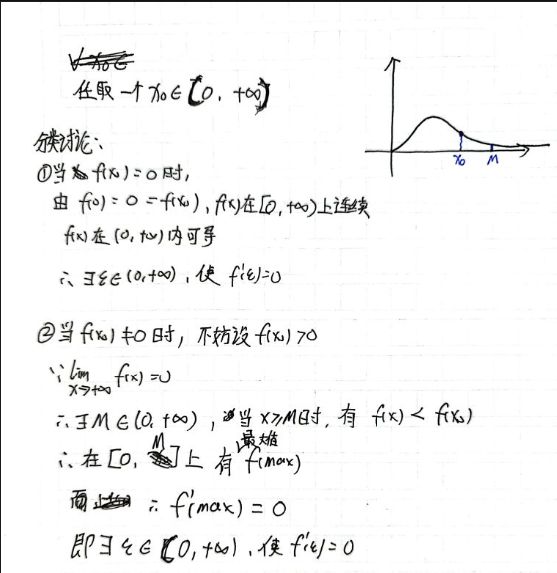 任取一个 x₀∈[0, +∞)
分类讨论:
①当 f(x₀)=0时,
由 f(0)=0=f(x₀), f(x)在[0,+∞)上连续
f(x)在(0,+∞)内可导
∴ ∃ξ∈(0,+∞), 使 f'(ξ)=0
②当f(x₀)≠0时, 不妨设f(x₀)>0
∵ lim x→+∞ f(x)=0
∴ ∃M∈(0,+∞), 当x≥M时, 有 f(x)<f(x₀)
∴ 在[0, M]上 有最大值 f(max)
而 ∴ f'(max)=0
即∃ξ∈(0,+∞), 使f'(ξ)=0
x₀ M